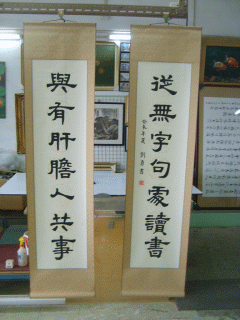 從無字句處讀書
與有肝膽人共事